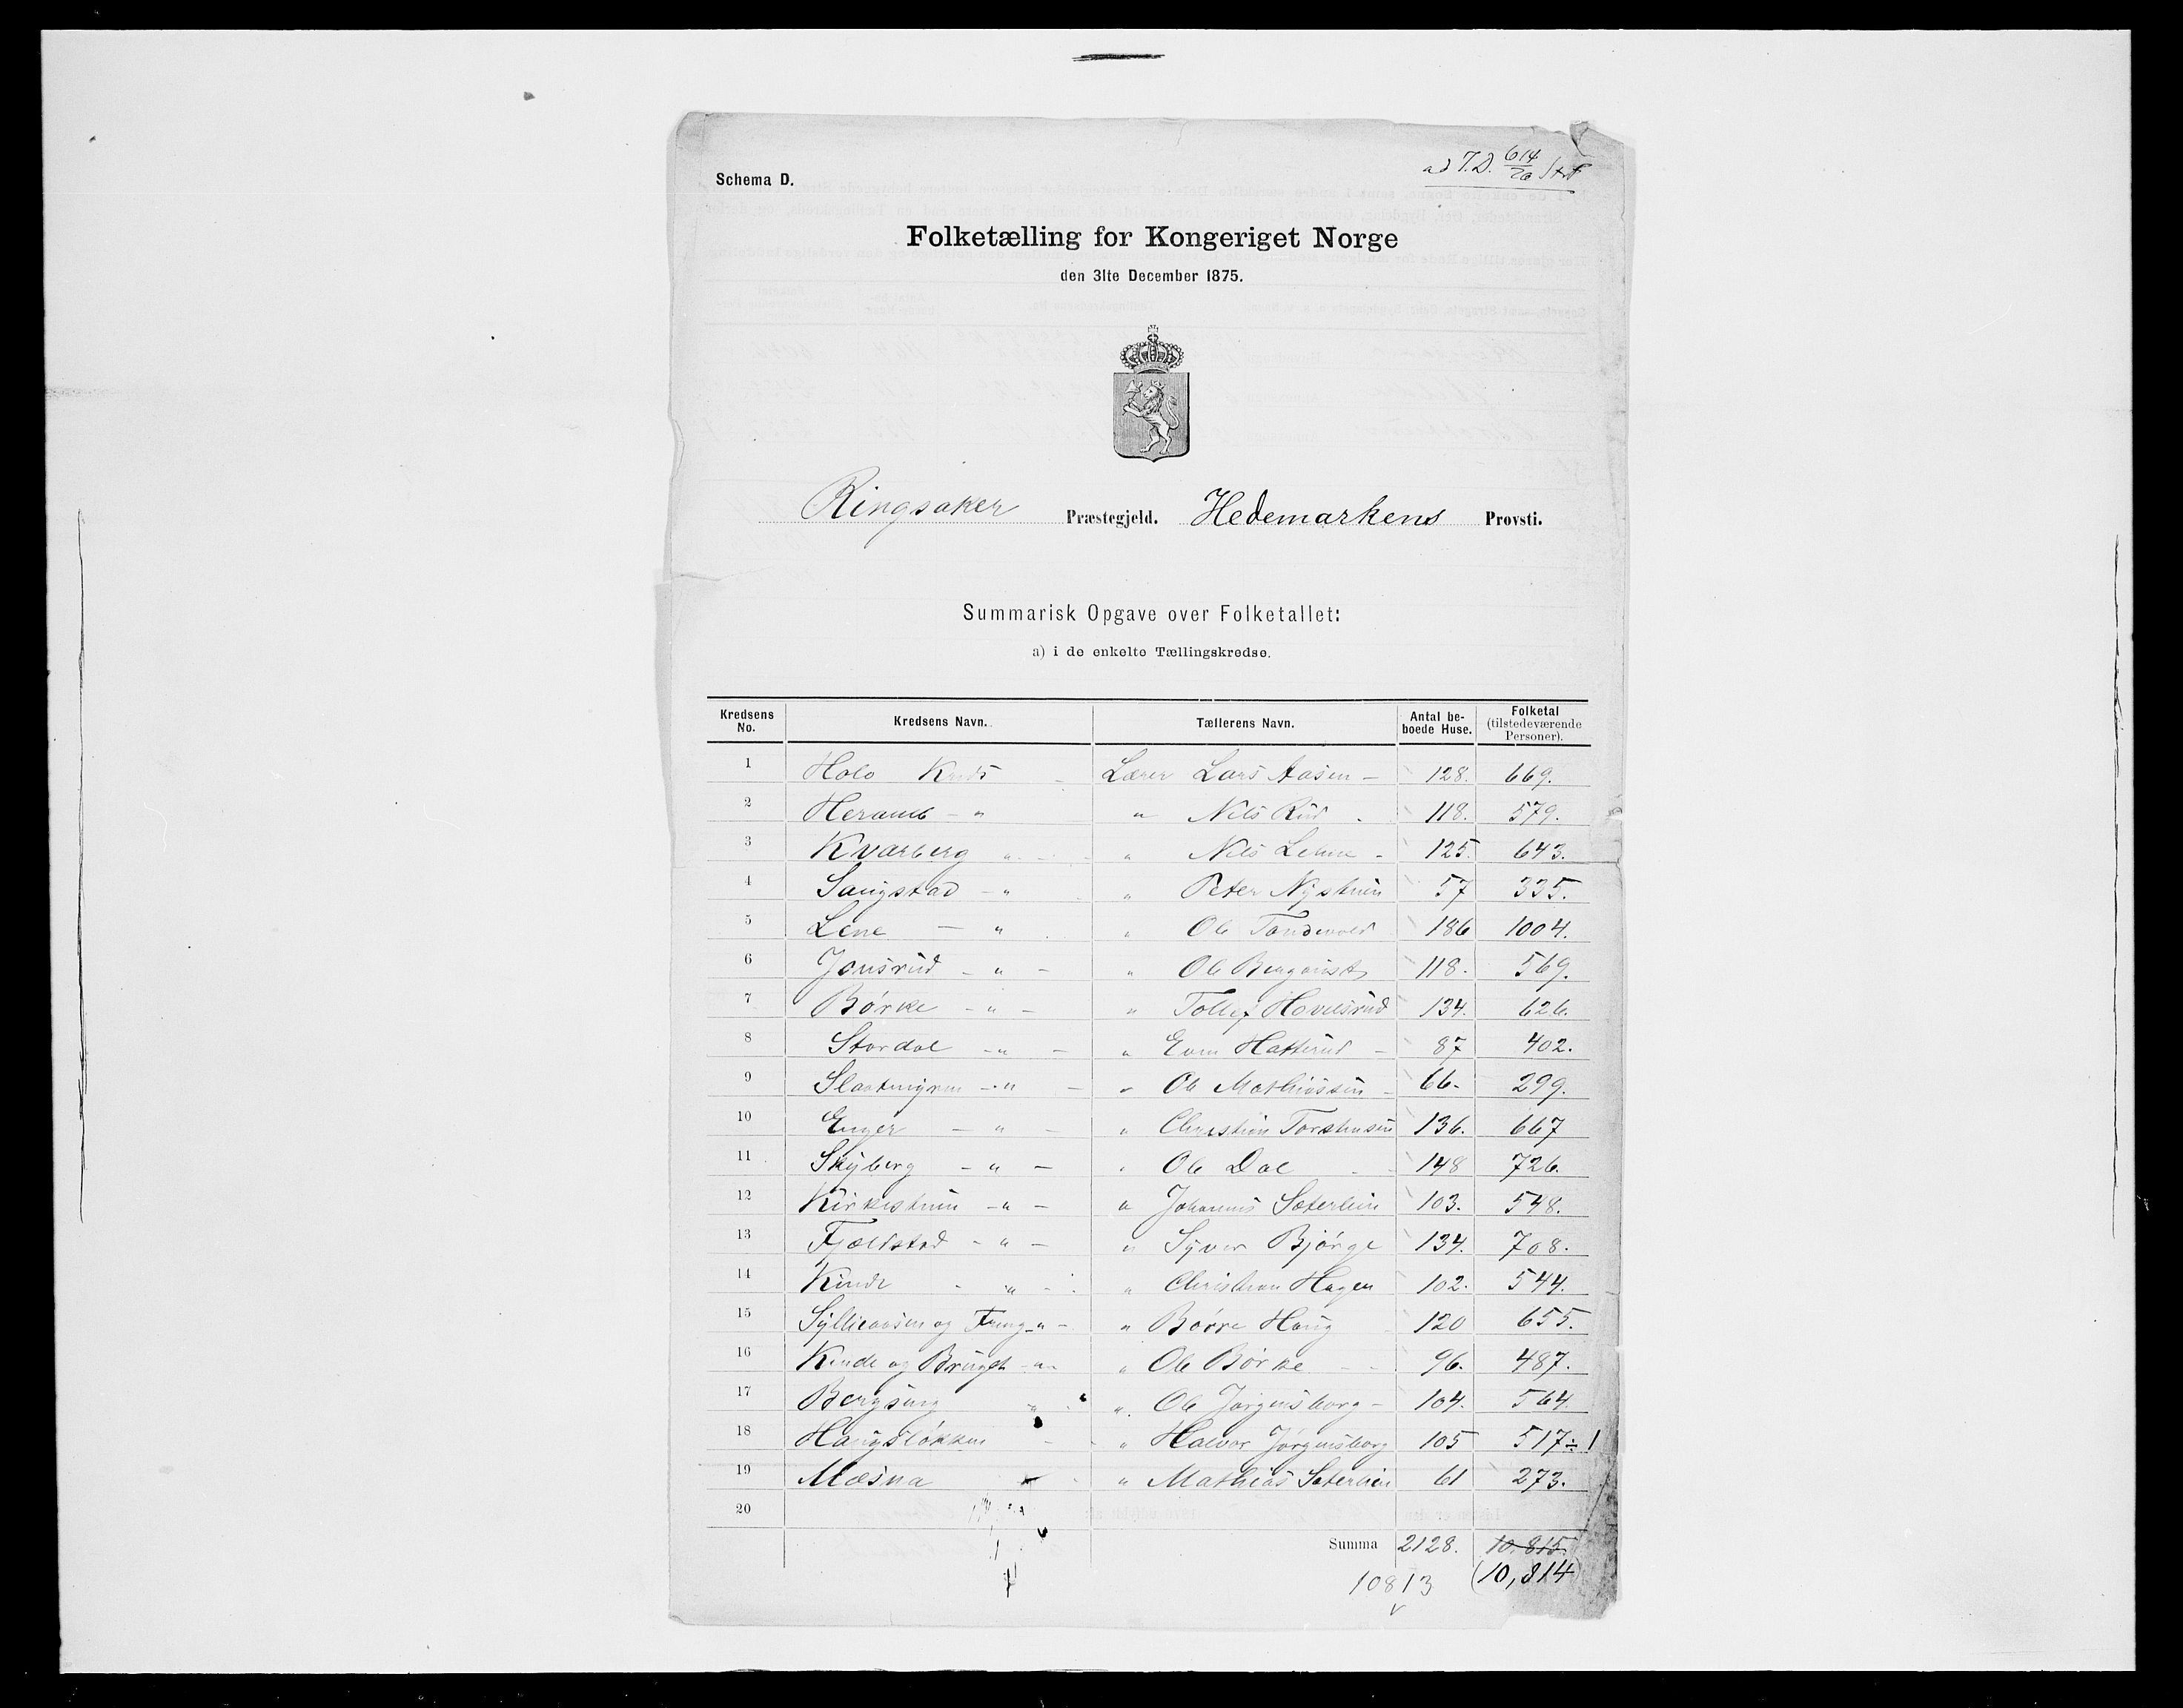 ad J.D. 614/76
Schema D.
Folketælling for Kongeriget Norge
den 31te December 1875.
Ringsaker Præstegjeld. Hedemarkens Provsti.
Summarisk Opgave over Folketallet:
a) i de enkelte Tællingskredse.
Kredsens No. Kredsens Navn. Tællerens Navn. Antal beboede Huse. Folketal (tilstedeværende Personer).
1 Holo Kreds Lærer Lars Aasen – 128. 669.
2 – " " Nils Rud 118. 579.
3 Kvarberg " " Nils 125. 643.
4 Saugstad – " " Peter Nystuen 57 335.
5 Lene – " " Ole 186 1004.
6 Jonsrud – " – " Ole Bergqvist 118. 569.
7 Börke – " – " Tollef Hovelsrud 134. 626.
8 Stordal – " – " Even – 87 402.
9 – " – " Ole Mathiassen – 66. 299.
10 Enger – " – " Christian Torstensen 136. 667
11 Skyberg – " – " Ole Dal 148 726.
12 Kirkestuen – " – " Johannes Sæterlien 103. 548.
13 Fjældstad – " – " Syver Bjørge 134. 708.
14 Kinde " – " Christian Hagen 102. 544.
15 og " – " Børre Haug 120 655.
16 Kinde og " " Ole Børke 96. 487.
17 Bergseng " " Ole Jørgensborg – 104. 564
18 Haugsløkken – " Halvor Jørgensborg 105 517 ÷ 1
19 Mæsna " Mathias Sæterlien 61 273.
20
Summa 2128. 10.815.
10813 (10,814)